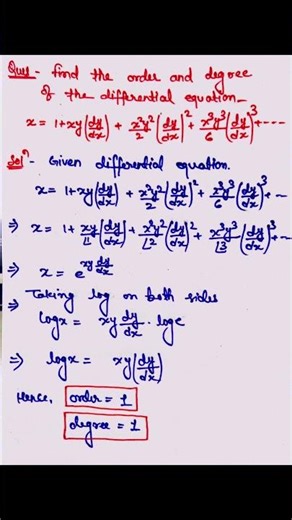 Ques - find the order and degree
of the differential equation_
x = 1+xy(dy/dx) + x²y²/2 (dy/dx)² + x³y³/6 (dy/dx)³ + ----
Solⁿ - Given differential equation.
x = 1+xy(dy/dx) + x²y²/2 (dy/dx)² + x³y³/6 (dy/dx)³ + --
⇒ x = 1 + xy/∟1 (dy/dx) + x²y²/∟2 (dy/dx)² + x³y³/∟3 (dy/dx)³ + --
⇒ x = e^(xy dy/dx)
⇒ Taking log on both sides
logx = xy dy/dx · loge
⇒ logx = xy(dy/dx)
Hence, order = 1
degree = 1